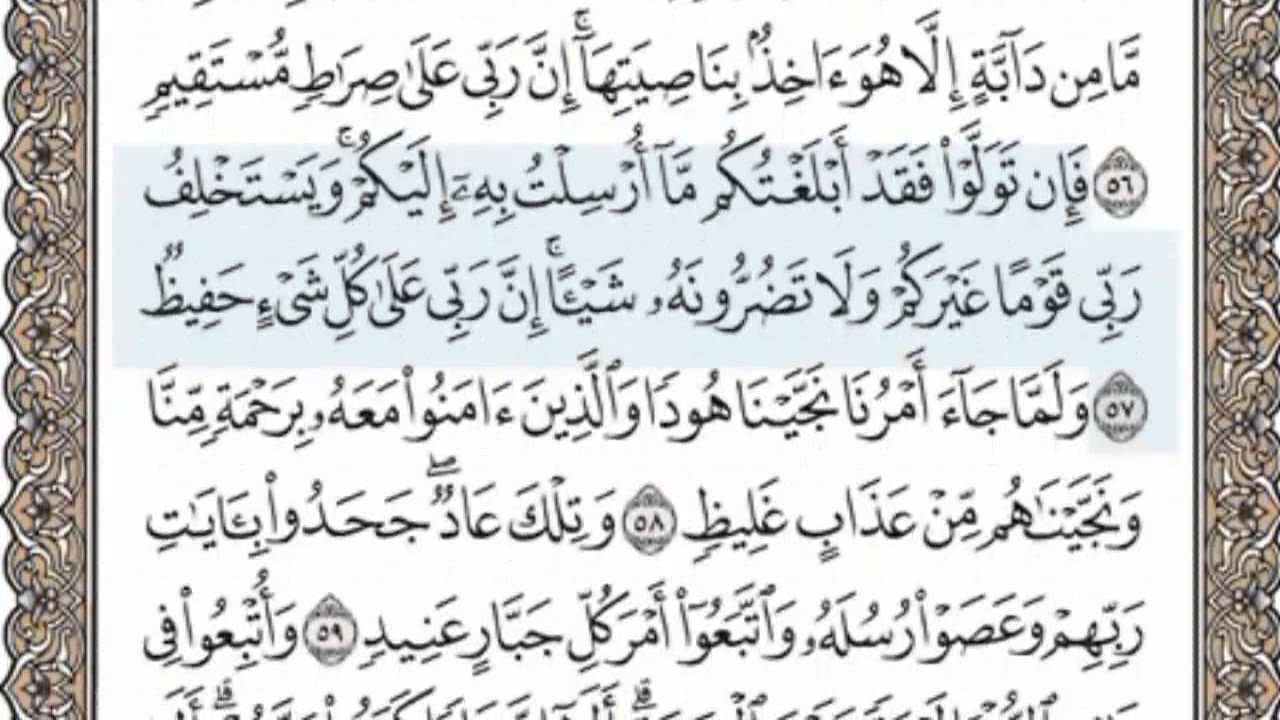 مَّا مِن دَآبَّةٍ إِلَّا هُوَ ءَاخِذٌۢ بِنَاصِيَتِهَآۚ إِنَّ رَبِّى عَلَىٰ صِرَٰطٍ مُّسْتَقِيمٍ
٥٦ فَإِن تَوَلَّوْا۟ فَقَدْ أَبْلَغْتُكُم مَّآ أُرْسِلْتُ بِهِۦٓ إِلَيْكُمْۚ وَيَسْتَخْلِفُ
رَبِّى قَوْمًا غَيْرَكُمْ وَلَا تَضُرُّونَهُۥ شَيْـًٔاۚ إِنَّ رَبِّى عَلَىٰ كُلِّ شَىْءٍ حَفِيظٌ
٥٧ وَلَمَّا جَآءَ أَمْرُنَا نَجَّيْنَا هُودًا وَٱلَّذِينَ ءَامَنُوا۟ مَعَهُۥ بِرَحْمَةٍ مِّنَّا
وَنَجَّيْنَٰهُم مِّنْ عَذَابٍ غَلِيظٍ ٥٨ وَتِلْكَ عَادٌۖ جَحَدُوا۟ بِـَٔايَٰتِ
رَبِّهِمْ وَعَصَوْا۟ رُسُلَهُۥ وَٱتَّبَعُوٓا۟ أَمْرَ كُلِّ جَبَّارٍ عَنِيدٍ ٥٩ وَأُتْبِعُوا۟ فِى